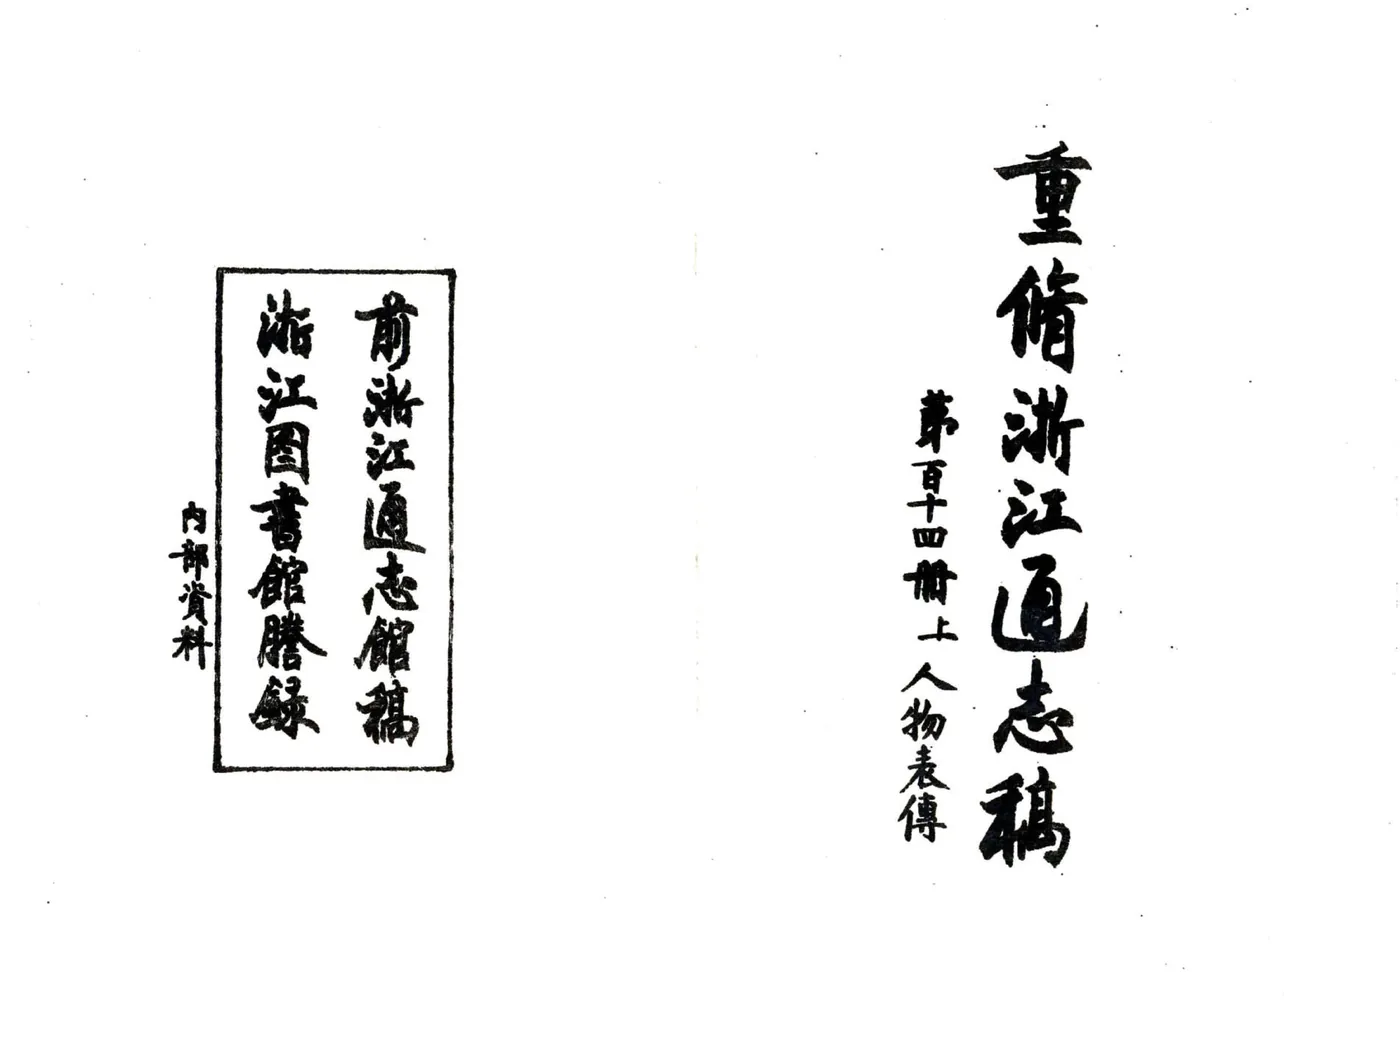 重脩浙江通志稿
第百十四册上 人物表傳
前浙江通志館稿
浙江图書館謄録
内部資料